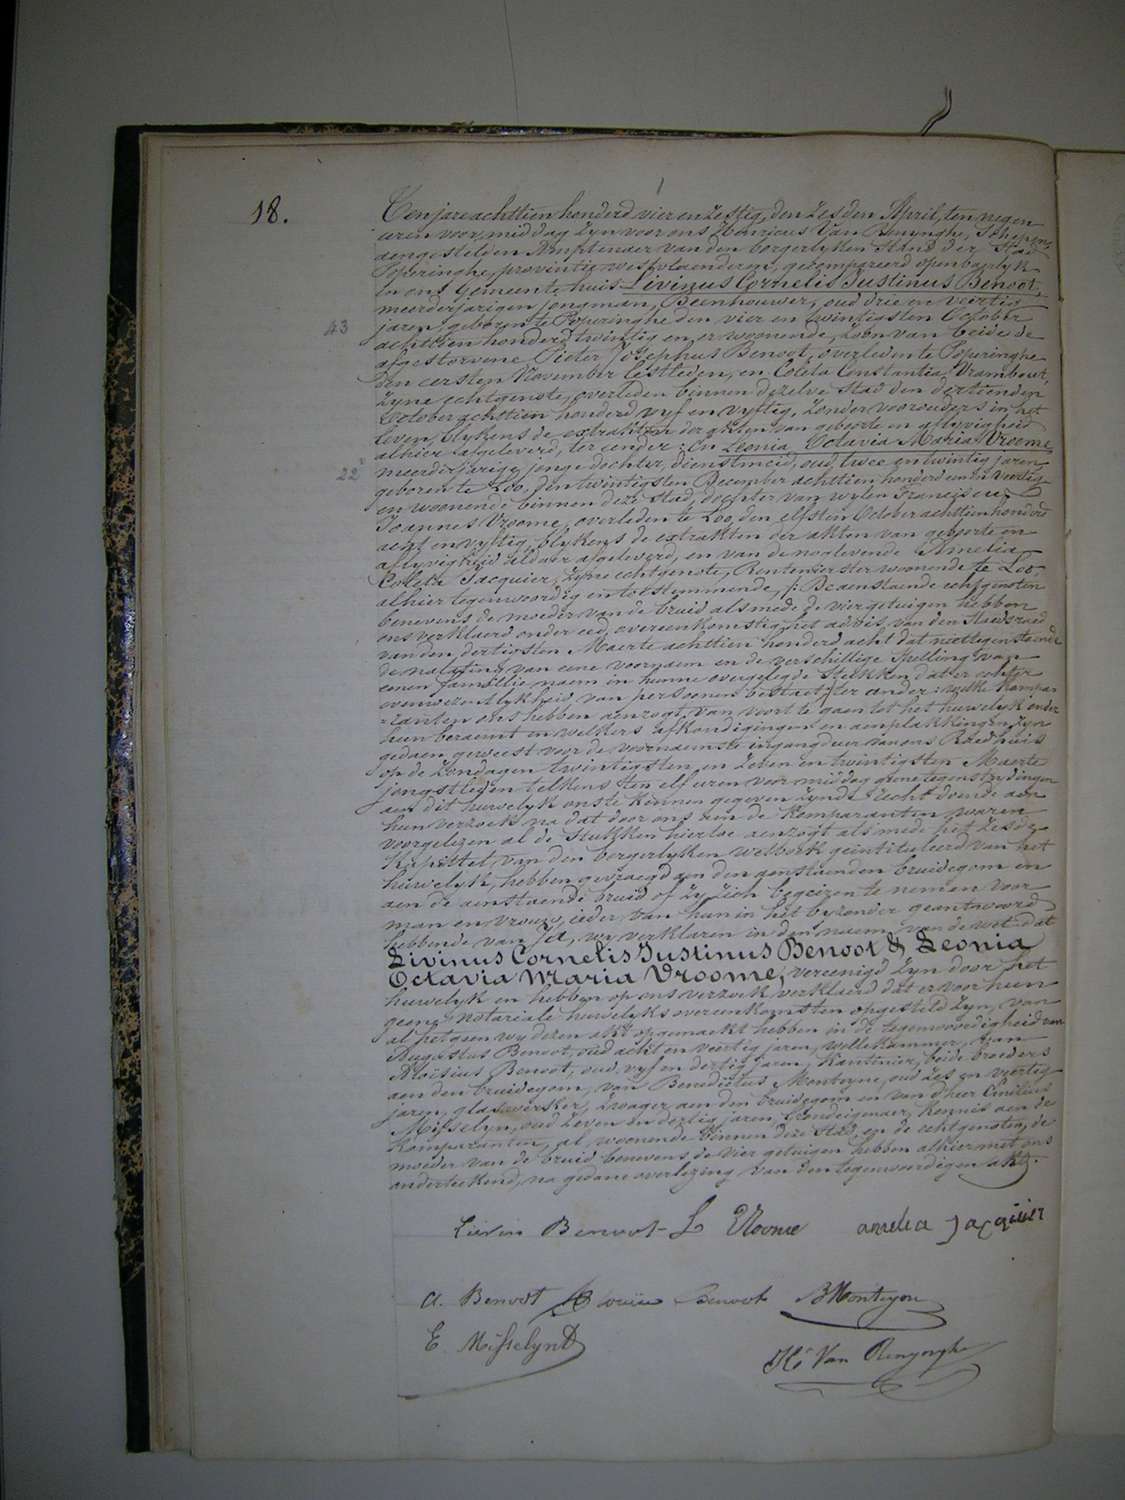 18.
Ten jare achttien honderd vier en zestig, den zesden April, ten negen
uren voor middag zyn voor ons Henricus Van Renynghe, Schepene
aengestelden Amptenaer van den borgerlyken Stand der Stad
Poperinghe, provintie westvlaenderen, gecompareerd openbaerlyk
in ons Gemeente huis Livinus Cornelis Justinus Benoot,
meerderjarigen jongman, Beenhouwer, oud drie en veertig
43
jaren, geboren te Poperinghe den vier en twintigsten October
achttien honderd twintig en er woonende, Zoon van beide de
afgestorvene Pieter Josephus Benoot, overleden te Poperinghe
den eersten November lestleden, en Coleta Constantia Vrambout,
zyne echtgenote, overleden binnen dezelve stad den dertienden
October achttien honderd vyf en vyftig, zonder voorouders in het
leven, blykens de extrakten der akten van geboorte en aflyvigheid
alhier afgeleverd, ter eender: En Leonia Octavia Maria Vroome,
22
meerderjarige jonge dochter, dienstmeid, oud twee en twintig jaren
geboren te Loo, den twintigsten December achttien honderd een en veertig
en woonende binnen deze stad, dochter van wylen Franciscus
Joannes Vroome, overleden te Loo, den elfsten October achttien honderd
acht en vyftig, blykens de extrakten der akten van geboorte en
aflyvigheid aldaer afgeleverd, en van de noglevende Amelia
Coleta Jacquier, zyne echtgenote, Rentenierster woonende te Loo
alhier tegenwoordig en toestemmende, /: De aenstaende echtgenoten
benevens de moeder van de bruid alsmede de vier getuigen hebben
ons verklaerd onder eed, overeenkomstig het advis van den Staedsraed
van den dertigsten Maerte achttien honderd acht dat niettegenstaende
de nalating van eene voornaem en de verschillige spelling van
eenen familie naem in hunne overgelegde stukken dat er echter
eenwezentlykheid van persoonen bestaet:/ ter ander: welke kompa-
=ranten ons hebben aenzogt van voort te gaen tot het huwelyk onder
hun beraemt en welkers afkondigingen en aenplakkingen zyn
gedaen geweest voor de voornaemste ingangdeur van ons Raedhuis
op de zondagen twintigsten en zeven en twintigsten Maerte
jongstleden telkens ten elf uren voor middag geene tegenstrydingen
aen dit huwelyk ons te kennen gegeven zynde recht doende aen
hun verzoek na dat door ons aen de Komparanten waren
voorgelezen al de Stukken hiertoe aenzogt als mede het Zesde
Kapittel van den borgerlyken wetboek geintituleerd van het
huwelyk, hebben gevraegd aen den aenstaenden bruidegom en
aen de aenstaende bruid of zy zich begeiren te nemen voor
man en vrouw, ieder van hun in het byzonder geantwoord
hebbende van Ja, wy verklaren in den naem van de wet dat
Livinus Cornelis Justinus Benoot & Leonia
Octavia Maria Vroome, vereenigd zyn door het
huwelyk en hebben op ons verzoek verklaerd dat er voor hun
geene notariale huwelyks overeenkomsten opgesteld zyn, van
al hetgeen wy dezen akt opgemaekt hebben in de tegenwoordigheid van
Augustus Benoot, oud acht en veertig jaren, wollekammer, van
Aloïsius Benoot, oud vyf en dertig jaren Kantinier, beide broeders
aen den bruidegom, van Benedictus Monteyne, oud zes en veertig
jaren, glaswerker, zwager aen den bruidegom en van d'heer Emilius
Misselyn, oud zeven en dertig jaren, Landeigenaer, kennis aen de
Komparanten, al woonende binnen deze stad, en de echtgenoten, de
moeder van de bruid benevens de vier getuigen hebben alhier met ons
onderteekend, na gedane overlezing van den tegenwoordigen akt.
Lievin Benoot L Vroome amelia jacquier
A. Benoot Louiis Benoot B Monteyne
E. Misselyn
He Van Renynghe